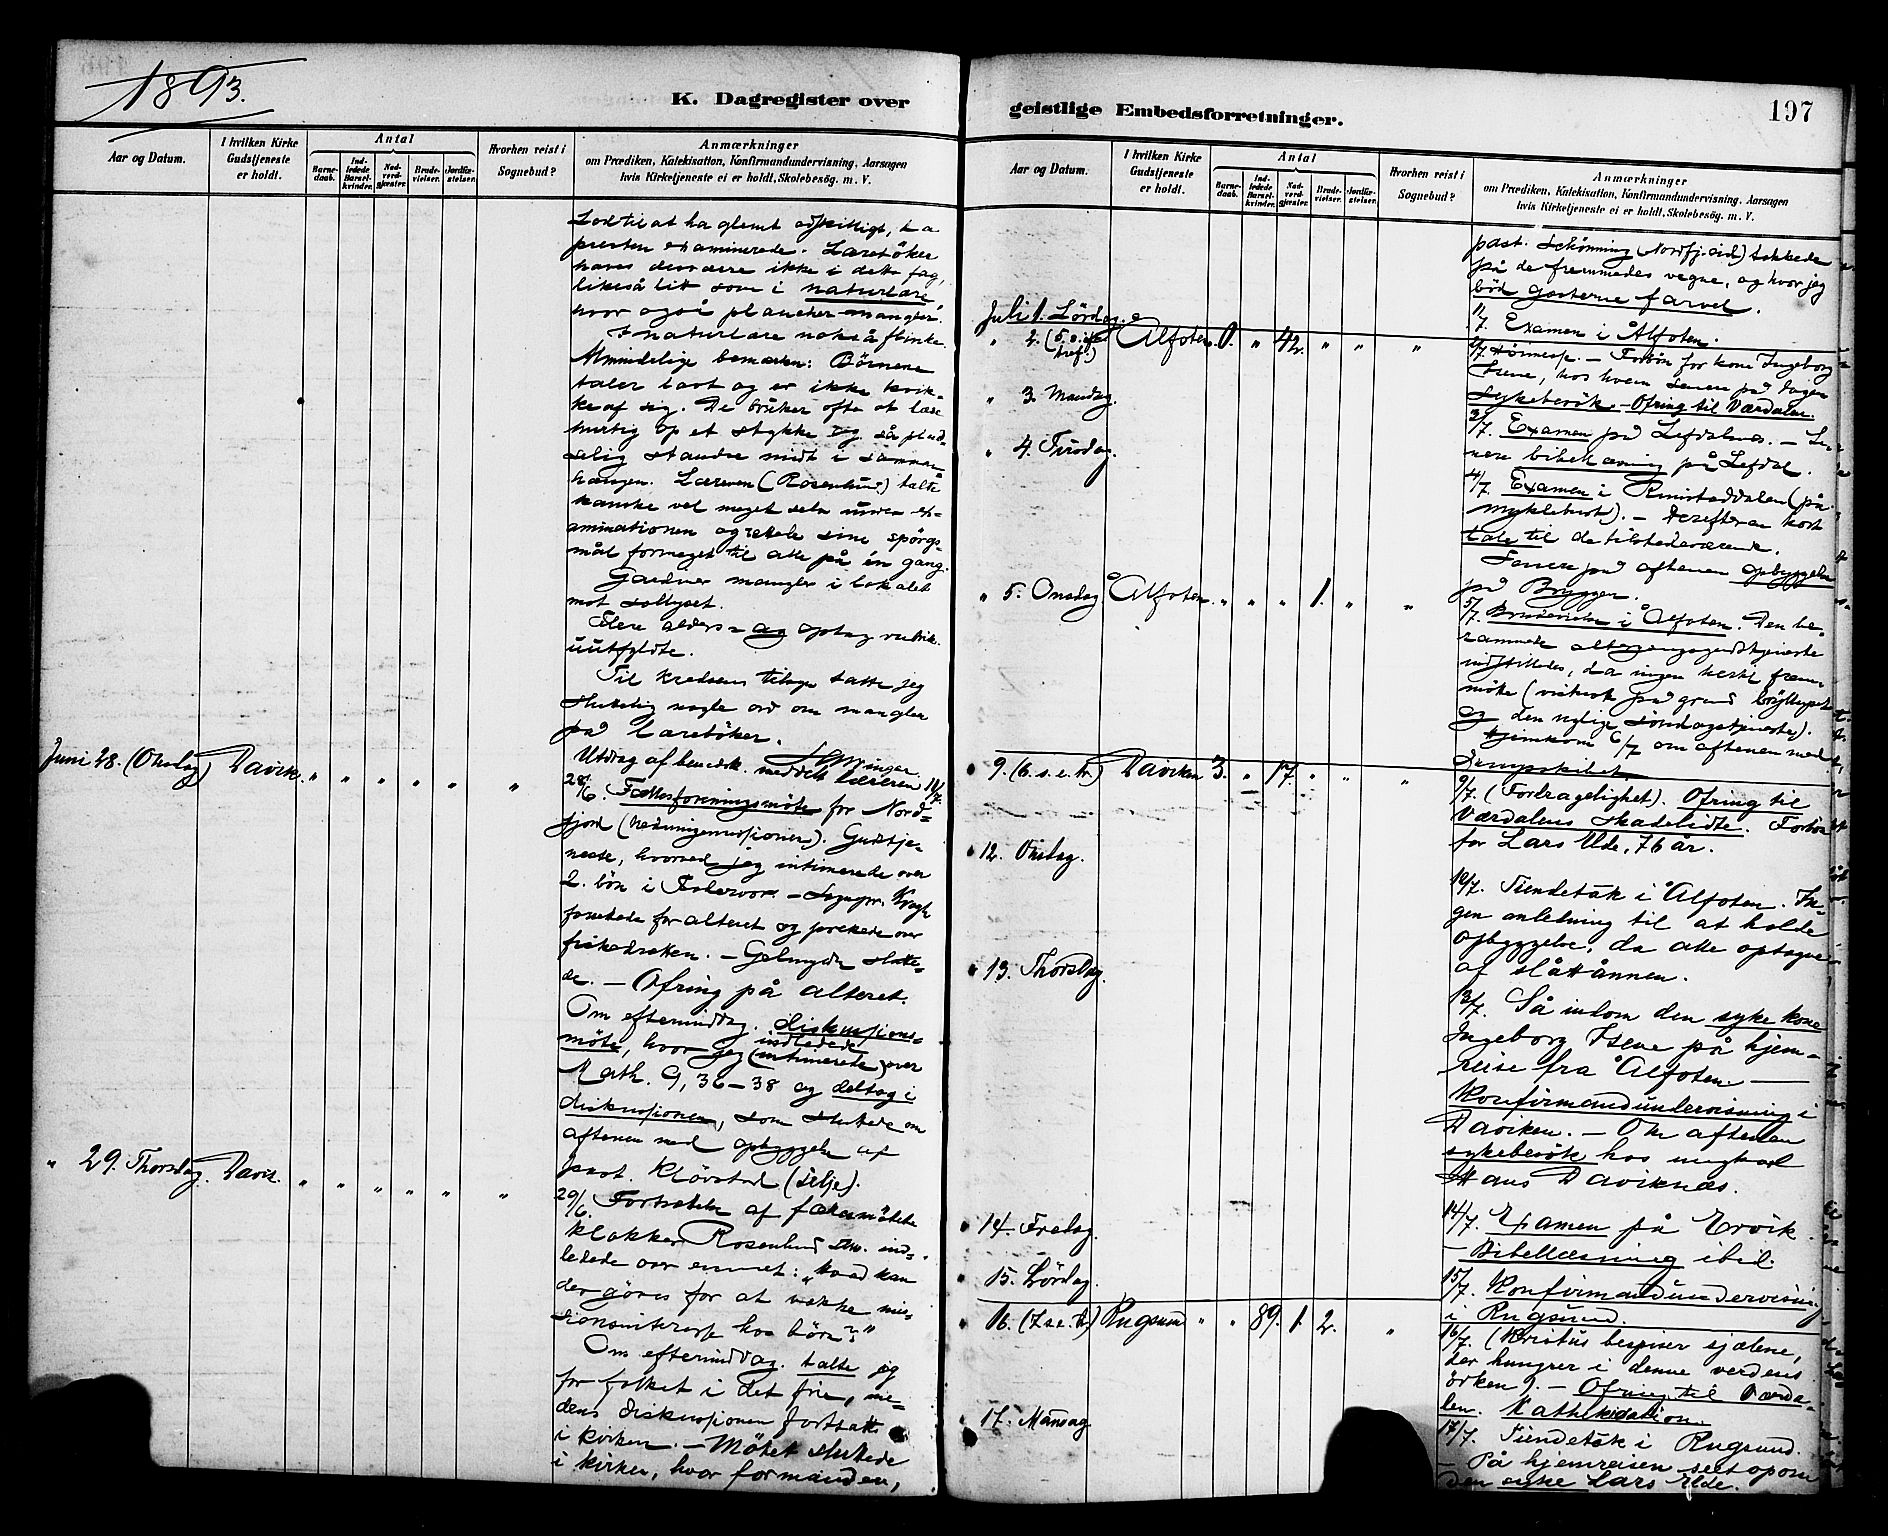 1893.
K. Dagregister over
Aar og Datum.
I hvilken Kirke Gudstjeneste er holdt.
Antal
Barnedaab.
Indledede Barselkvinder.
Nadverdgjester.
Brudevielser.
Jordfæstelser.
Hvorhen reist i Sognebud?
Anmærkninger
om Prædiken, Katekisation, Konfirmandundervisning, Aarsagen
hvis Kirketjeneste ei er holdt, Skolebesög. m. V.
Lod til at ha glemt adskilligt, da
presten examinerede. Lærebøker
haves desværre ikke i dette fag,
likeså litt som i naturlære,
hvor også plancher mangler.
I naturlære nokså flinke.
Almindelige bemærkn: Børnene
taler lavt og er ikke kvik-
ke af sig. De bruker ofte at læse
hurtig op et stykke og så plud-
selig standse midt i sammen-
hængen. Læreren (Rosenlund) talte
kanske vel meget selv under ex-
aminationen og rettede sine spörgs-
mål formeget til alle på én gang.
Gardiner mangler i lokalet
mot sollyset.
Flere alders- og optag. rubrik.
uutfyldte.
Til kredsens tilsyn talte jeg
sluttelig nogle ord om mangler
på lærebøker.
Utdrag af bemærk. meddelt læreren 11/7.
Juni 28. (Onsdag) Davik. " " " " " "
28/6. Fællesforeningsmöte for Nord-
fjord (hedningemissionen). Gudstje-
neste, hvorved jeg intimerede over
2. bön i Fadervor. - Sognepr.
forrettede for alteret og prekede over
fiskedretten. -
- Ofring på alteret.
Om eftermiddag. diskussions-
möte, hvor jeg indledede (intimerede) over
Math. 9, 36-38 og deltog i
diskussionen, som sluttede om
aftenen med opbyggelse af
past. Klövstad (Selje).
" 29. Thorsdag. Davik. " " " " " "
29/6. Fortsettelse af fællesmötet.
Klokker Rosenlund sen. ind-
ledede over emnet: "hvad kan
der göres for at vække mis-
sionsinteresse hos börn?"
Om eftermiddag. talte jeg
for folket i det frie, me-
dens diskussionen fortsatte
i kirken. - Mötet sluttede
i kirken, hvor formanden,
geistlige Embedsforretninger.
197
Aar og Datum.
I hvilken Kirke Gudstjeneste er holdt.
Antal
Barnedaab.
Indledede Barselkvinder.
Nadverdgjester.
Brudevielser.
Jordfæstelser.
Hvorhen reist i Sognebud?
Anmærkninger
om Prædiken, Katekisation, Konfirmandundervisning, Aarsagen
hvis Kirketjeneste ei er holdt, Skolebesög. m. V.
past. Schönning (Nordfj.eid) takkede
på de fremmedes vegne, og hvor jeg
bød gæsterne farvel.
Juli 1. Lördag.
1/7. Examen i Ålfoten.
" 2. (5. s. eft. tref.) Ålfoten. 0. " 42. " " "
2/7. - Forbön for kone Ingeborg
Isene, hos hvem senere på dagen
sykebesök. - Ofring til Værdalen.
" 3. Mandag.
3/7. Examen på Lefdalnes. - Se-
nere bibellæsning på Lefdal.
" 4. Tirsdag.
4/7. Examen i Rimstaddalen (på
Myklebust). - Derefter en kort
tale til de tilstedeværende.
Senere på aftenen opbyggelse
på Bryggen.
" 5. Onsdag Ålfoten. " " " 1. " "
5/7. Brudevielse i Ålfoten. Den be-
rammede altergangsgudstjeneste
indstilledes, da ingen gjester frem-
mötte (vistnok på grund bryllupet
og den nylige söndagstjeneste).
Hjemkom 6/7 om aftenen med
Dampskibet.
" 9. (6. s. e. tr.) Daviken 3. " 17. " " "
9/7. (Fordragelighet). Ofring til
Værdalens skadelidte. Forbön
for Lars Ilde, 76 år.
" 12. Onsdag.
12/7. Tiendetak i Ålfoten. In-
gen anledning til at holde
opbyggelse, da alle optagne
af slåttånnen.
" 13. Thorsdag.
13/7. Så indom den syke kone
Ingeborg Isene på hjem-
reise fra Ålfoten. -
Konfirmandundervisning i
Daviken. - Om aftenen
sykebesök hos ungkarl
Hans Daviknæs.
" 14. Fredag.
14/7. Examen på Ervik
- Bibellæsning ibid.
" 15. Lördag.
15/7. Konfirmandundervisning
i Rugsund.
" 16. (7 s. e. tr.) Rugsund " " 89. 1. 2. "
16/7. (Kristus bespiser sjælene,
der hungrer i denne verdens
örken). - Ofring til Værda-
len. Kathekisation.
" 17. Mandag
17/7. Tiendetak i Rugsund.
- På hjemreisen seet op om
den syke Lars Ilde.